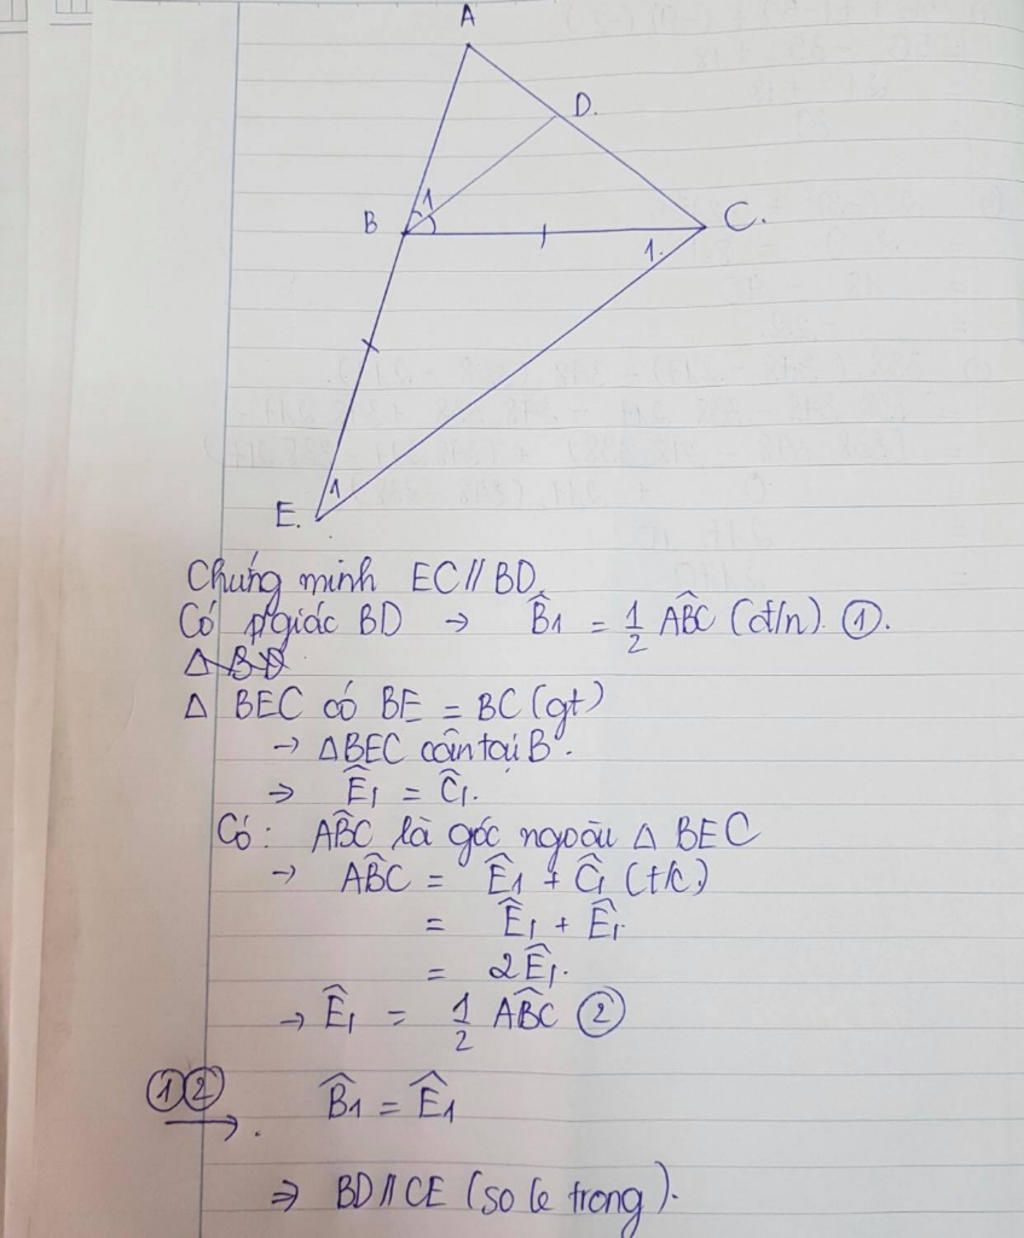 A
D.
1
B
C.
1.
1
E.
Chứng minh EC // BD.
Có p/giác BD → B̂1 = 1/2 ABĈ (đ/n). ①.
Δ BEC có BE = BC (gt)
→ ΔBEC cân tại B.
→ Ê1 = Ĉ1.
Có: ABĈ là góc ngoài Δ BEC
→ ABĈ = Ê1 + Ĉ1 (t/c)
= Ê1 + Ê1.
= 2Ê1.
→ Ê1 = 1/2 ABĈ ②
①② → . B̂1 = Ê1
⇒ BD // CE (so le trong).